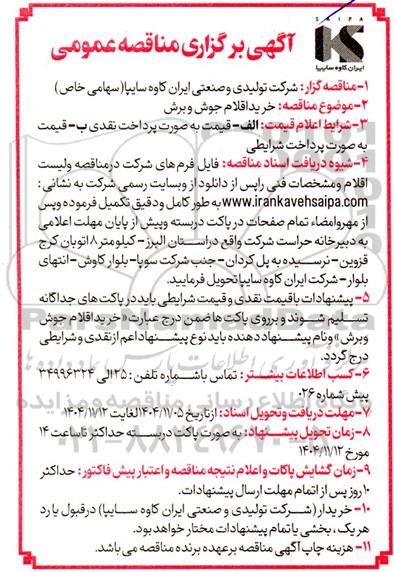 SAIPA
ایران کاوه سایپا
آگهی برگزاری مناقصه عمومی
۱- مناقصه گزار: شرکت تولیدی و صنعتی ایران کاوه سایپا(سهامی خاص)
۲- موضوع مناقصه: خرید اقلام جوش و برش
۳- شرایط اعلام قیمت: الف- قیمت به صورت پرداخت نقدی ب- قیمت
به صورت پرداخت شرایطی
۴- شیوه دریافت اسناد مناقصه: فایل فرم های شرکت در مناقصه ولیست
اقلام و مشخصات فنی را پس از دانلود از وبسایت رسمی شرکت به نشانی:
www.irankavehsaipa.com به طور کامل و دقیق تکمیل فرموده و پس
از مهر و امضاء تمام صفحات در پاکت در بسته و پیش از پایان مهلت اعلامی
به دبیرخانه حراست شرکت واقع در استان البرز - کیلومتر ۸ اتوبان کرج
قزوین - نرسیده به پل کردان - جنب شرکت سوپا - بلوار کاوش - انتهای
بلوار - شرکت ایران کاوه سایپا تحویل فرمایید.
۵- پیشنهادات با قیمت نقدی و قیمت شرایطی باید در پاکت های جداگانه
تسلیم شوند و بر روی پاکت ها ضمن درج عبارت «خرید اقلام جوش
وبرش» و نام پیشنهاد دهنده باید نوع پیشنهاد اعم از نقدی و شرایطی
درج گردد.
۶- کسب اطلاعات بیشتر: تماس با شماره تلفن: ۲۵ الی ۳۴۹۹۶۳۲۴
پیش شماره ۰۲۶
۷- مهلت دریافت و تحویل اسناد: از تاریخ ۱۴۰۴/۱۱/۰۵ لغایت ۱۴۰۴/۱۱/۱۲
۸- زمان تحویل پیشنهاد: به صورت پاکت در بسته حداکثر تا ساعت ۱۴
مورخ ۱۴۰۴/۱۱/۱۲
۹- زمان گشایش پاکات و اعلام نتیجه مناقصه و اعتبار پیش فاکتور: حداکثر
۱۰ روز پس از اتمام مهلت ارسال پیشنهادات.
۱۰- خریدار (شرکت تولیدی و صنعتی ایران کاوه سایپا) در قبول یا رد
هر یک، بخشی یا تمام پیشنهادات مختار خواهد بود.
۱۱- هزینه چاپ آگهی مناقصه بر عهده برنده مناقصه می باشد.